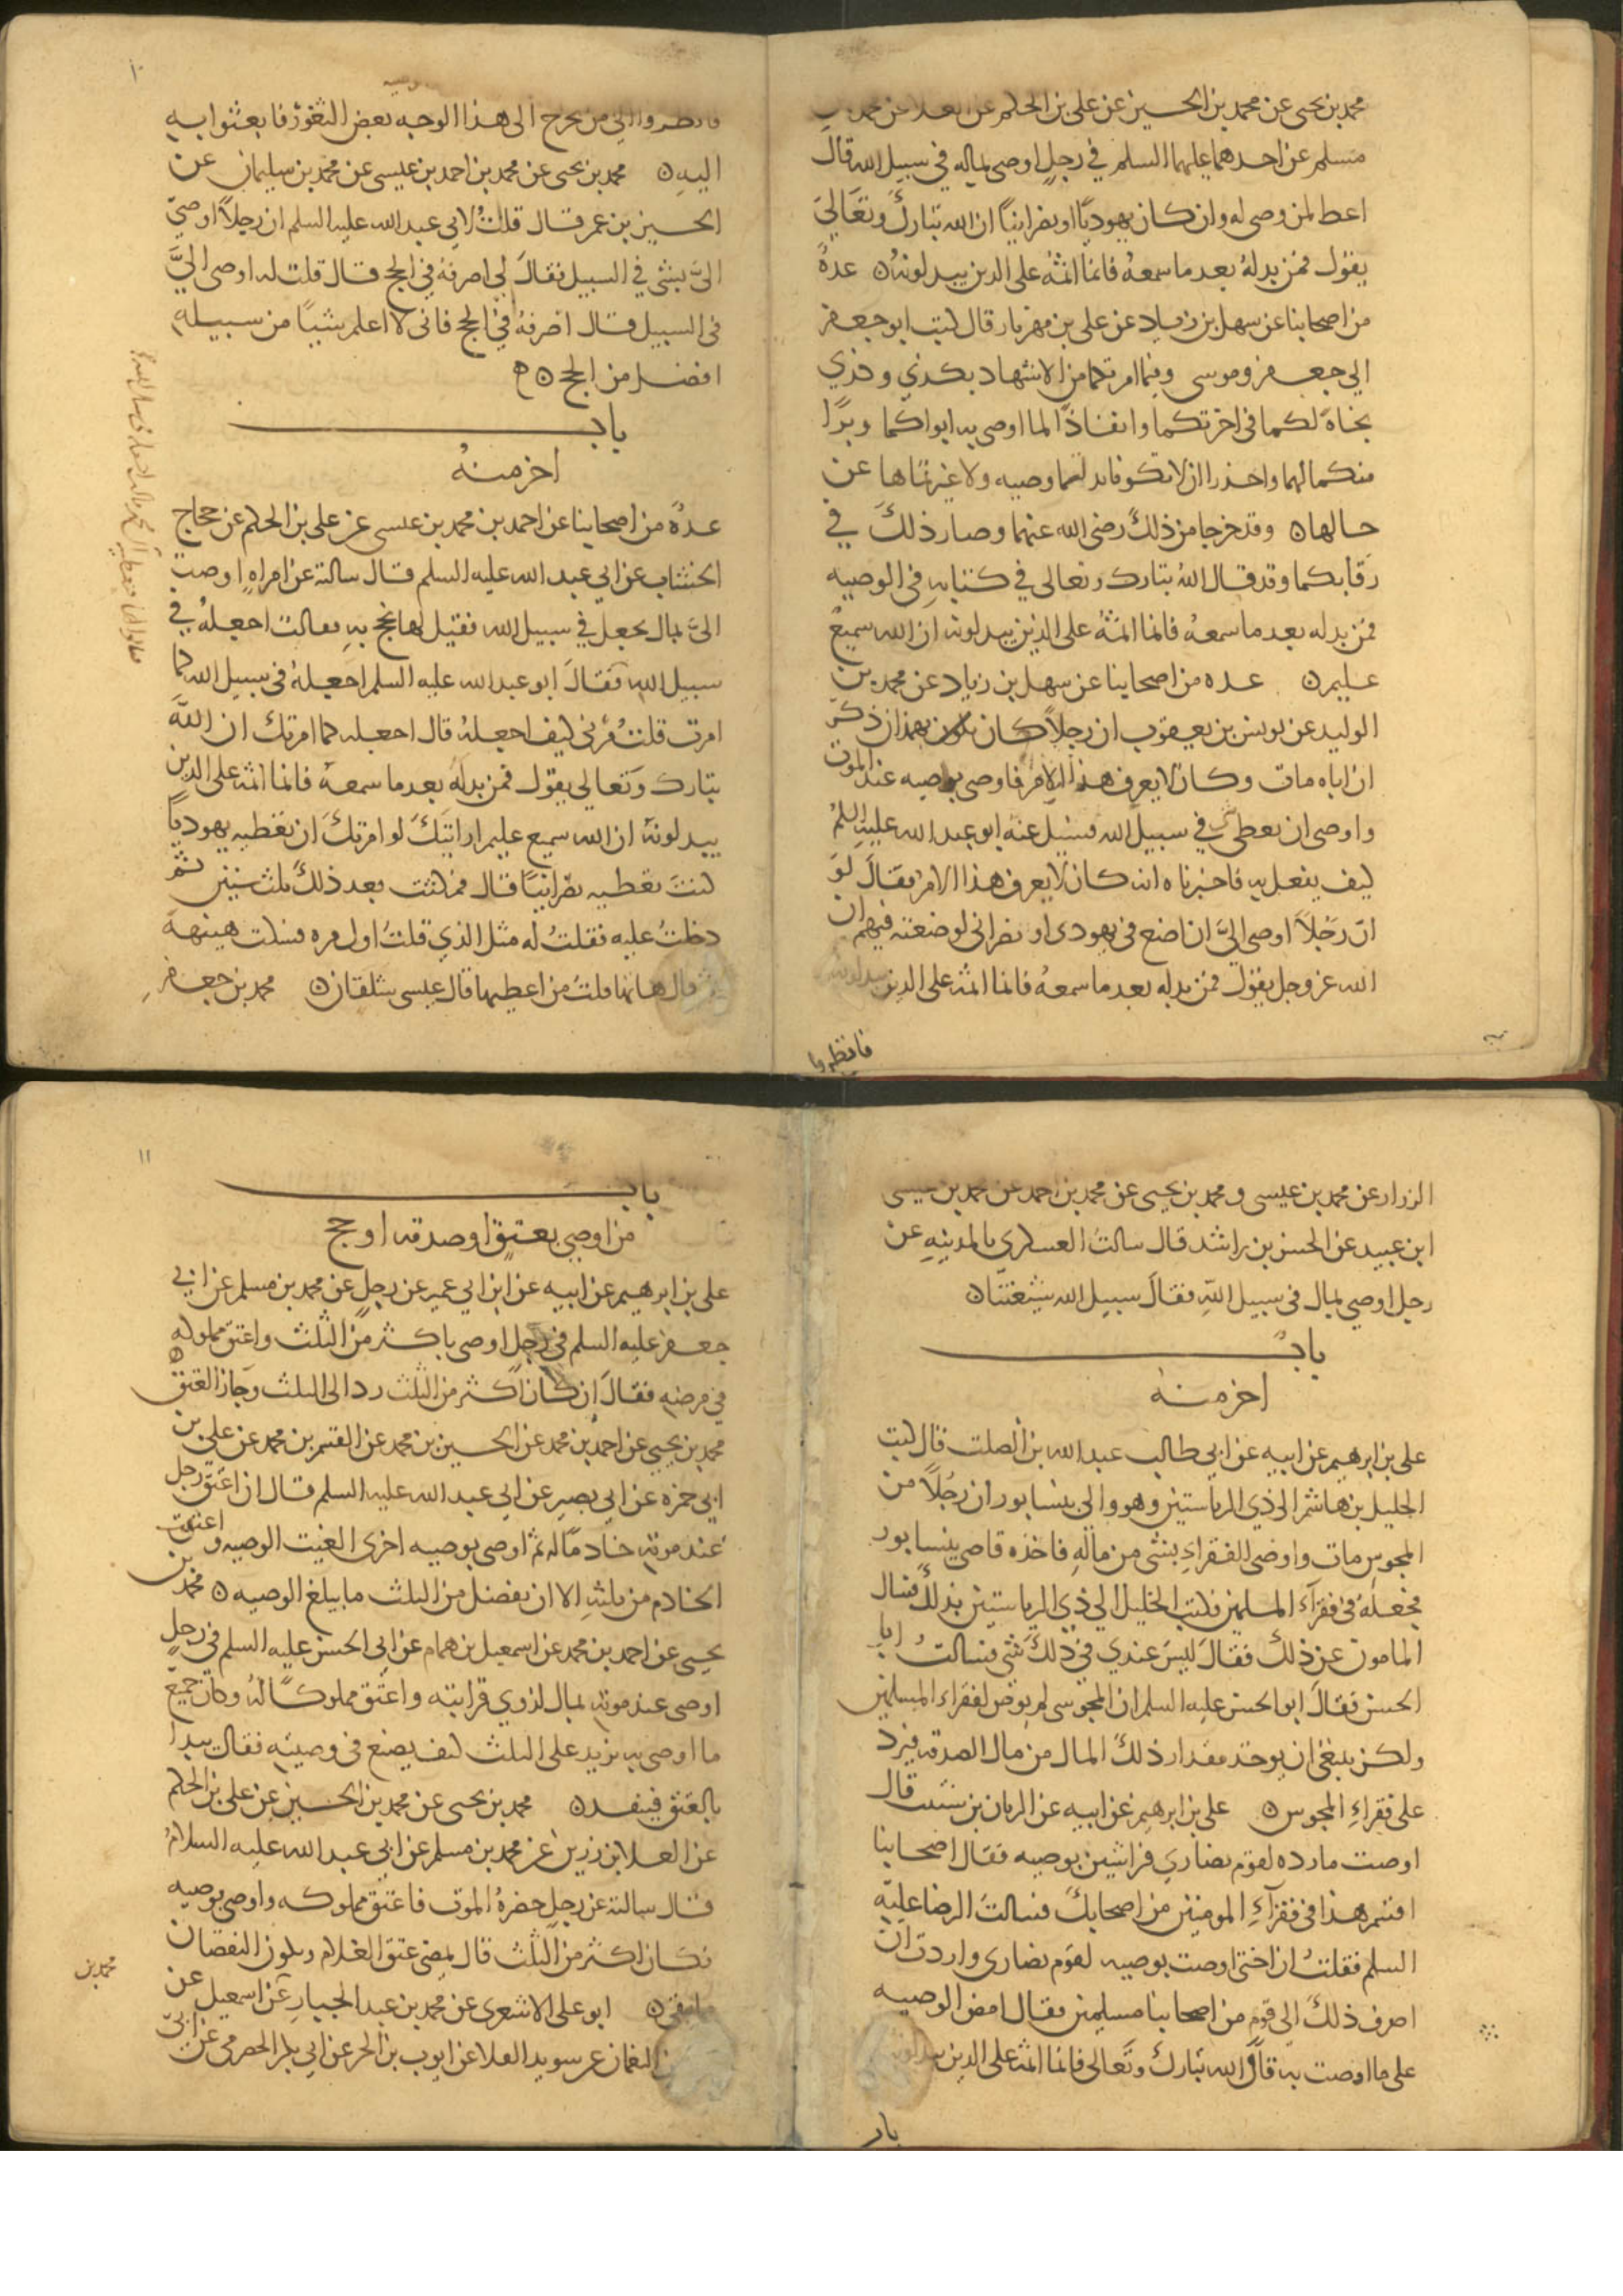 محمد بن يحيى عن محمد بن الحسين عن علي بن الحكم عن العلا عن محمد بن
مسلم عن احدهما عليهما السلم في رجل اوصى بماله في سبيل الله قال
اعط لمن وصى له وان كان يهوديا او نصرانيا ان الله تبارك وتعالى
يقول فمن بدله بعد ما سمعه فانما اثمه على الذين يبدلونه ه عدة
من اصحابنا عن سهل بن زياد عن علي بن مهزيار قال كتب ابو جعفر
الى جعفر وموسى وفيما امرتكما من الاشهاد بكذي وكذي
نجاة لكما في اخرتكما وانفاذا لما اوصى به ابواكما وبرا
منكما لهما واحذرا ان لا تكونا بدلتما وصيه ولا غيرتماها عن
حالها ه وقد خرجا من ذلك رضى الله عنهما وصار ذلك في
رقابكما وقد قال الله تبارك وتعالى في كتابه في الوصيه
فمن بدله بعد ما سمعه فانما اثمه على الذين يبدلونه ان الله سميع
عليم ه عده من اصحابنا عن سهل بن زياد عن محمد بن
الوليد عن يونس بن يعقوب ان رجلا كان بهمذان ذكر
ان اباه مات وكان لا يعرف هذا الامر فاوصى بوصيه عند الموت
واوصى ان يعطى شي في سبيل الله فسئل عنه ابو عبد الله عليه السلم
كيف يفعل به فاخبرناه انه كان لا يعرف هذا الامر فقال لو
ان رجلا اوصى الي ان اضع في يهودى او نصراني لوضعته فيهم ان
الله عز وجل يقول فمن بدله بعد ما سمعه فانما اثمه على الذين يبدلونه
فانظروا
١٠
فانظروا الى من يخرج الى هذا الوجه بعض الثغور فابعثوا به
اليه ه محمد بن يحيى عن محمد بن احمد بن عيسى عن محمد بن سليمان عن
الحسين بن عمر قال قلت لابي عبد الله عليه السلم ان رجلا اوصى
الي بشي في السبيل فقال لي اصرفه في الحج قال قلت له اوصى الي
في السبيل قال اصرفه في الحج فاني لا اعلم شيا من سبيله
افضل من الحج ه
باب
اخر منه
عدة من اصحابنا عن احمد بن محمد بن عيسى عن علي بن الحكم عن حجاج
الخشاب عن ابي عبد الله عليه السلم قال سالته عن امراه اوصت
الي بمال يجعل في سبيل الله فقيل لها نحج به فقالت اجعله في
سبيل الله فقال ابو عبد الله عليه السلم اجعله في سبيل الله كما
امرت قلت مرني كيف اجعله قال اجعله كما امرتك ان الله
تبارك وتعالى يقول فمن بدله بعد ما سمعه فانما اثمه على الذين
يبدلونه ان الله سميع عليم ارايتك لو امرتك ان تعطيه يهوديا
كنت تعطيه نصرانيا قال فمكثت بعد ذلك ثلث سنين ثم
دخلت عليه فقلت له مثل الذي قلت اول مره فسكت هنيهة
ثم قال هاتها قلت من اعطيها قال عيسى شلقان ه محمد بن جعفر
الرزاز عن محمد بن عيسى ومحمد بن يحيى عن محمد بن احمد عن محمد بن عيسى
ابن عبيد عن الحسن بن راشد قال سالت العسكري بالمدينه عن
رجل اوصى بمال في سبيل الله فقال سبيل الله شيعتنا ه
باب
اخر منه
علي بن ابرهيم عن ابيه عن ابي طالب عبد الله بن الصلت قال كتب
الخليل بن هاشم الى ذي الرياستين وهو والى نيسابور ان رجلا من
المجوس مات واوصى للفقراء بشي من ماله فاخذه قاضى نيسابور
فجعله في فقراء المسلمين فكتب الخليل الى ذي الرياستين بذلك فسال
المامون عن ذلك فقال ليس عندي في ذلك شي فسالت ابا
الحسن فقال ابو الحسن عليه السلم ان المجوسى لم يوص لفقراء المسلمين
ولكن ينبغى ان يوخذ مقدار ذلك المال من مال الصدقه فيرد
على فقراء المجوس ه علي بن ابرهيم عن ابيه عن الريان بن شبيب قال
اوصت مارده لقوم نصارى فراشين بوصيه فقال اصحابنا
اقسم هذا في فقراء المومنين من اصحابك فسالت الرضا عليه
السلم فقلت ان اختى اوصت بوصيه لقوم نصارى واردت ان
اصرف ذلك الى قوم من اصحابنا مسلمين فقال امض الوصيه
على ما اوصت به قال الله تبارك وتعالى فانما اثمه على الذين يبدلونه
باب
١١
باب
من اوصى بعتق او صدقه او حج
علي بن ابرهيم عن ابيه عن ابن ابي عمير عن رجل عن محمد بن مسلم عن ابي
جعفر عليه السلم في رجل اوصى باكثر من الثلث واعتق مملوكه
في مرضه فقال ان كان اكثر من الثلث رد الى الثلث وجاز العتق ه
محمد بن يحيى عن احمد بن محمد عن الحسين بن محمد عن القسم بن محمد عن علي بن
ابي حمزه عن ابي بصير عن ابي عبد الله عليه السلم قال ان اعتق رجل
عند موته خادما له ثم اوصى بوصيه اخرى الغيت الوصيه واعتقت
الخادم من ثلثه الا ان يفضل من الثلث ما يبلغ الوصيه ه محمد بن
يحيى عن احمد بن محمد عن اسمعيل بن همام عن ابي الحسن عليه السلم في رجل
اوصى عند موته بمال لذوي قرابته واعتق مملوكا له وكان جميع
ما اوصى به يزيد على الثلث كيف يصنع في وصيته فقال يبدا
بالعتق فينفذه ه محمد بن يحيى عن محمد بن الحسين عن علي بن الحكم
عن العلا بن رزين عن محمد بن مسلم عن ابي عبد الله عليه السلام
قال سالته عن رجل حضره الموت فاعتق مملوكه واوصى بوصيه
فكان اكثر من الثلث قال يمضى عتق الغلام ويكون النقصان
فيما بقى ه ابو على الاشعرى عن محمد بن عبد الجبار عن اسمعيل عن
بن النعمان عن سويد القلا عن ايوب بن الحر عن ابي بكر الحضرمى عن ابي
محمد بن